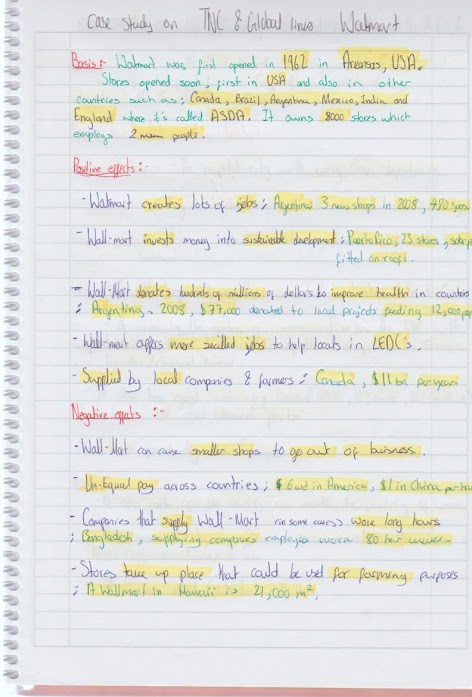 Case Study on TNC & Global links Walmart
Basis:- Walmart was first opened in 1962 in Arkansas, USA.
Stores opened soon, first in USA and also in other
countries such as; Canada, Brazil, Argentina, Mexico, India and
England where it's called ASDA. It owns 8000 stores which
employs 2 people.
Positive effects:-
- Walmart creates lots of jobs; Argentina 3 new shops in 2008, 490 jobs
- Wall-mart invests money into sustainable development; 23 stores, solar
fitted on roofs.
- Wall-Mart donates hundreds of millions of dollars to improve health in
; Argentina - 2008, $77,000 donated to local projects feeding 12,000
- Wall-mart offers more skilled jobs to help locals in LEDC's.
- Supplied by local companies & farmers; Canada, $11 bil per year.
Negative effects:-
- Wall-Mart can cause smaller shops to go out of buisness.
- Un-Equal pay across countries; $6 in America, $1 in China per
- Companies that supply Wall-Mart (in some cases) work long hours
; Bangladesh, supplying companies employees work 80 hour
- Stores take up place that could be used for farming purposes
; A Wallmart in Hawaii is 21,000 m².